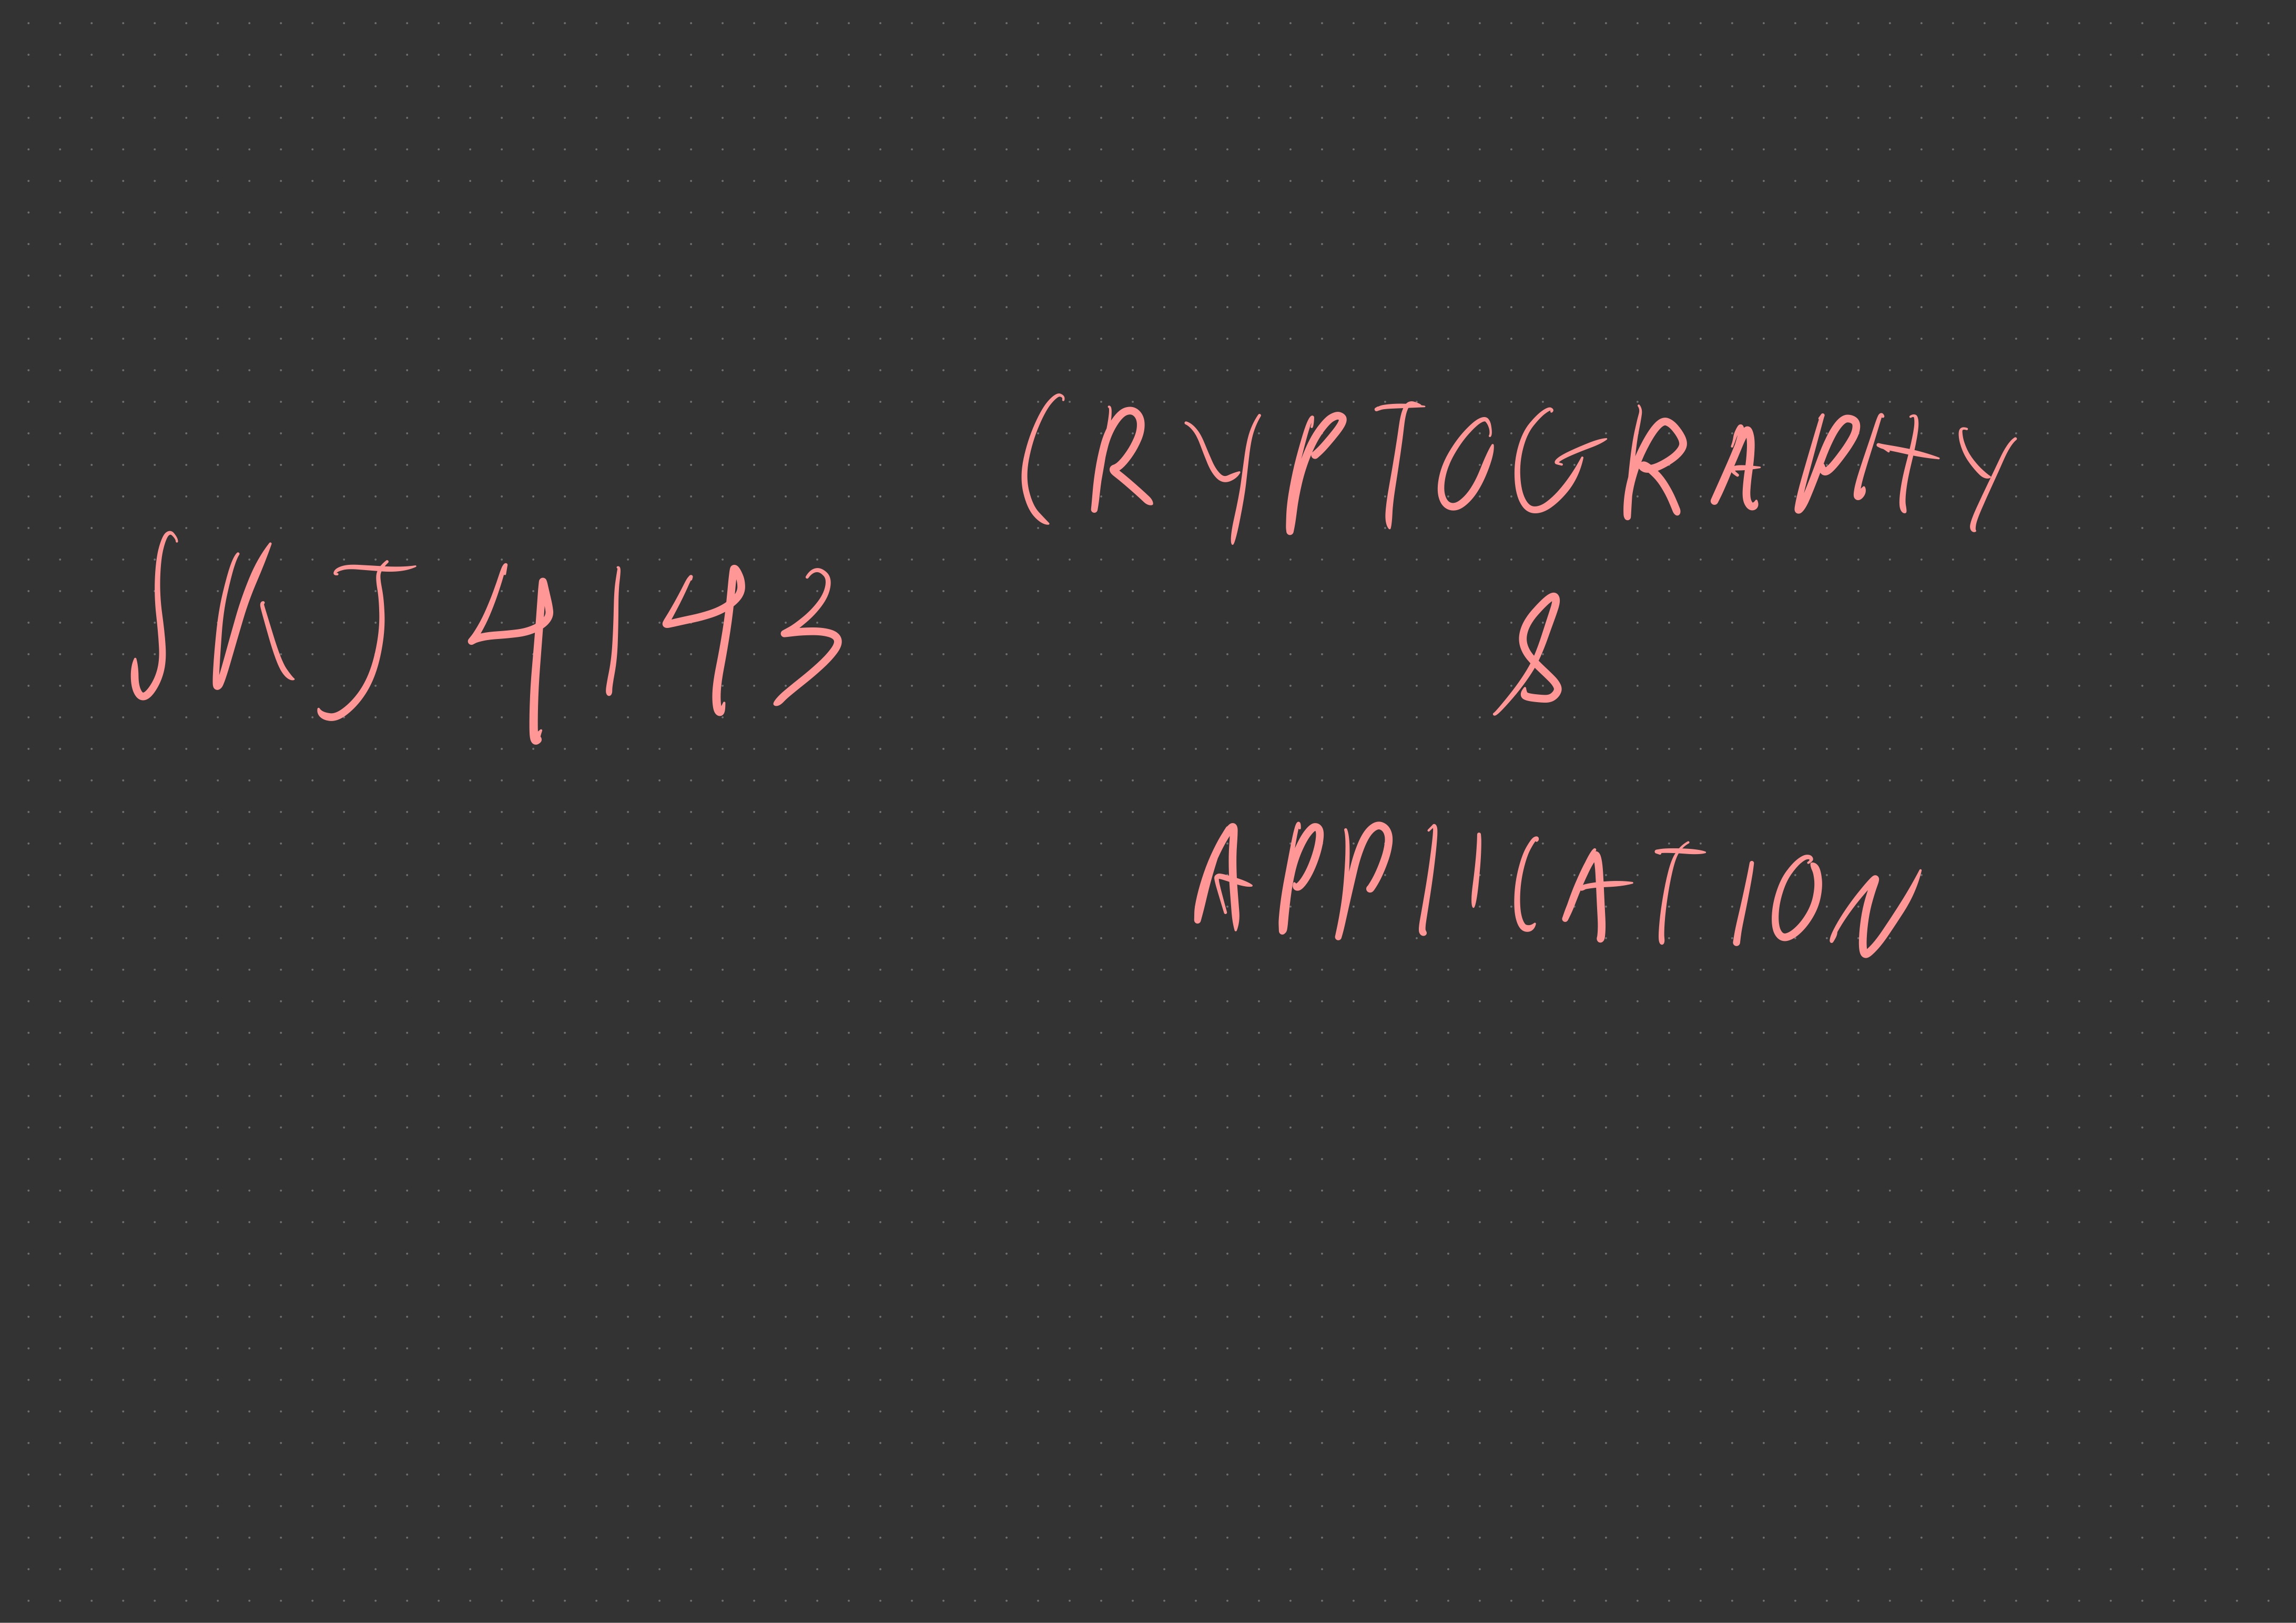 SKJ 4143
CRYPTOGRAPHY
&
APPLICATION